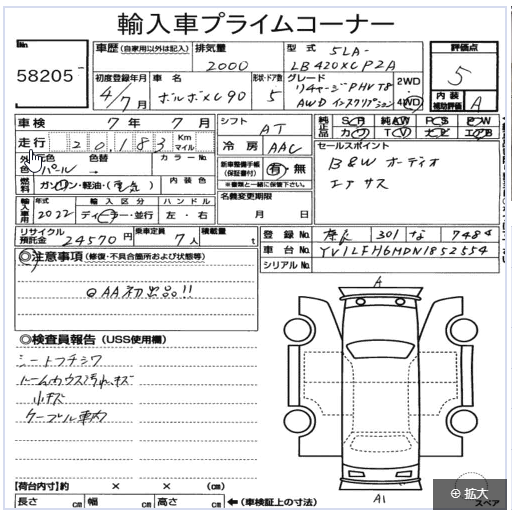 輸入車プライムコーナー
58205
車歴 (自家用以外は記入) 排気量 2000
型式 5LA-LB420XCP2A
評価点 5
内装補助評価 A
初度登録年月 4/7月
車名 ボルボXC90
形状・ドア数 5
グレード リチャージPHV T8 AWD インスクリプション
2WD 4WD
車検 7年 7月
走行 20,183 Km マイル
シフト AT
冷房 AAC
純正品 S・R 純AW P・S P・W
カワ T V ナビ エアB
外色 元色 パール 色替 →
カラーNo.
内装色
燃料 ガソリン・軽油・(電気)
新車整備手帳 (保証書付) 有・無
※書類と一緒に保管下さい。
名義変更期限 月 日
セールスポイント
B&W オーディオ
エアサス
輸入車用 年式 2022 輸入区分 ディーラー・並行 ハンドル 左・右
リサイクル預託金 24570円 乗車定員 7人 積載量 t
登録No. 301 な 7484
車台No. YV1LFH6MDN1852554
シリアルNo.
◎注意事項 (修復・不具合箇所および状態等)
◎AA初出品!!
◎検査員報告 (USS使用欄)
シートフチシワ
小キズ
ケーブル車内
A
A1
【荷台内寸】約 × × (cm)
長さ cm 幅 cm 高さ cm ←(車検証上の寸法)
スペア
⊕ 拡大